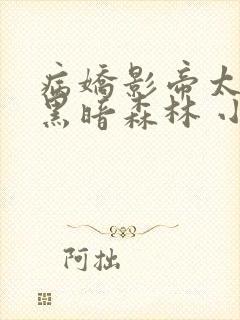 病嬌影帝太
黑暗森林 小
阿拙